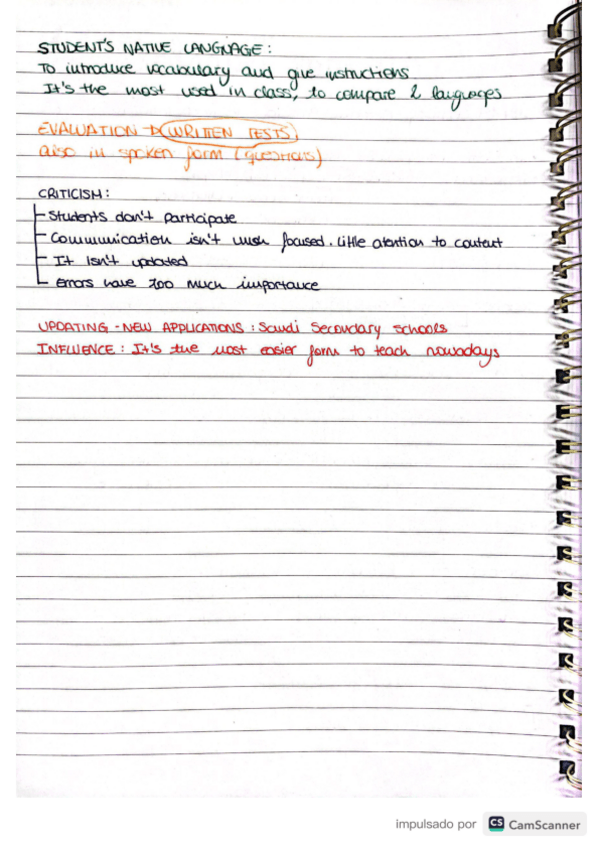 STUDENT'S NATIVE LANGNAGE:
To introduce vocabulary and give instructions
It's the most used in class, to compare 2 languages
EVALUATION → WRITTEN TESTS
also in spoken form (questions)
CRITICISM:
- Students don't participate
- Communication isn't much focused. Little atention to context
- It isn't updated
- errors have too much importance
UPDATING - NEW APPLICATIONS: Saudi Secondary schools
INFLUENCE: It's the most easier form to teach nowadays
impulsado por CS CamScanner